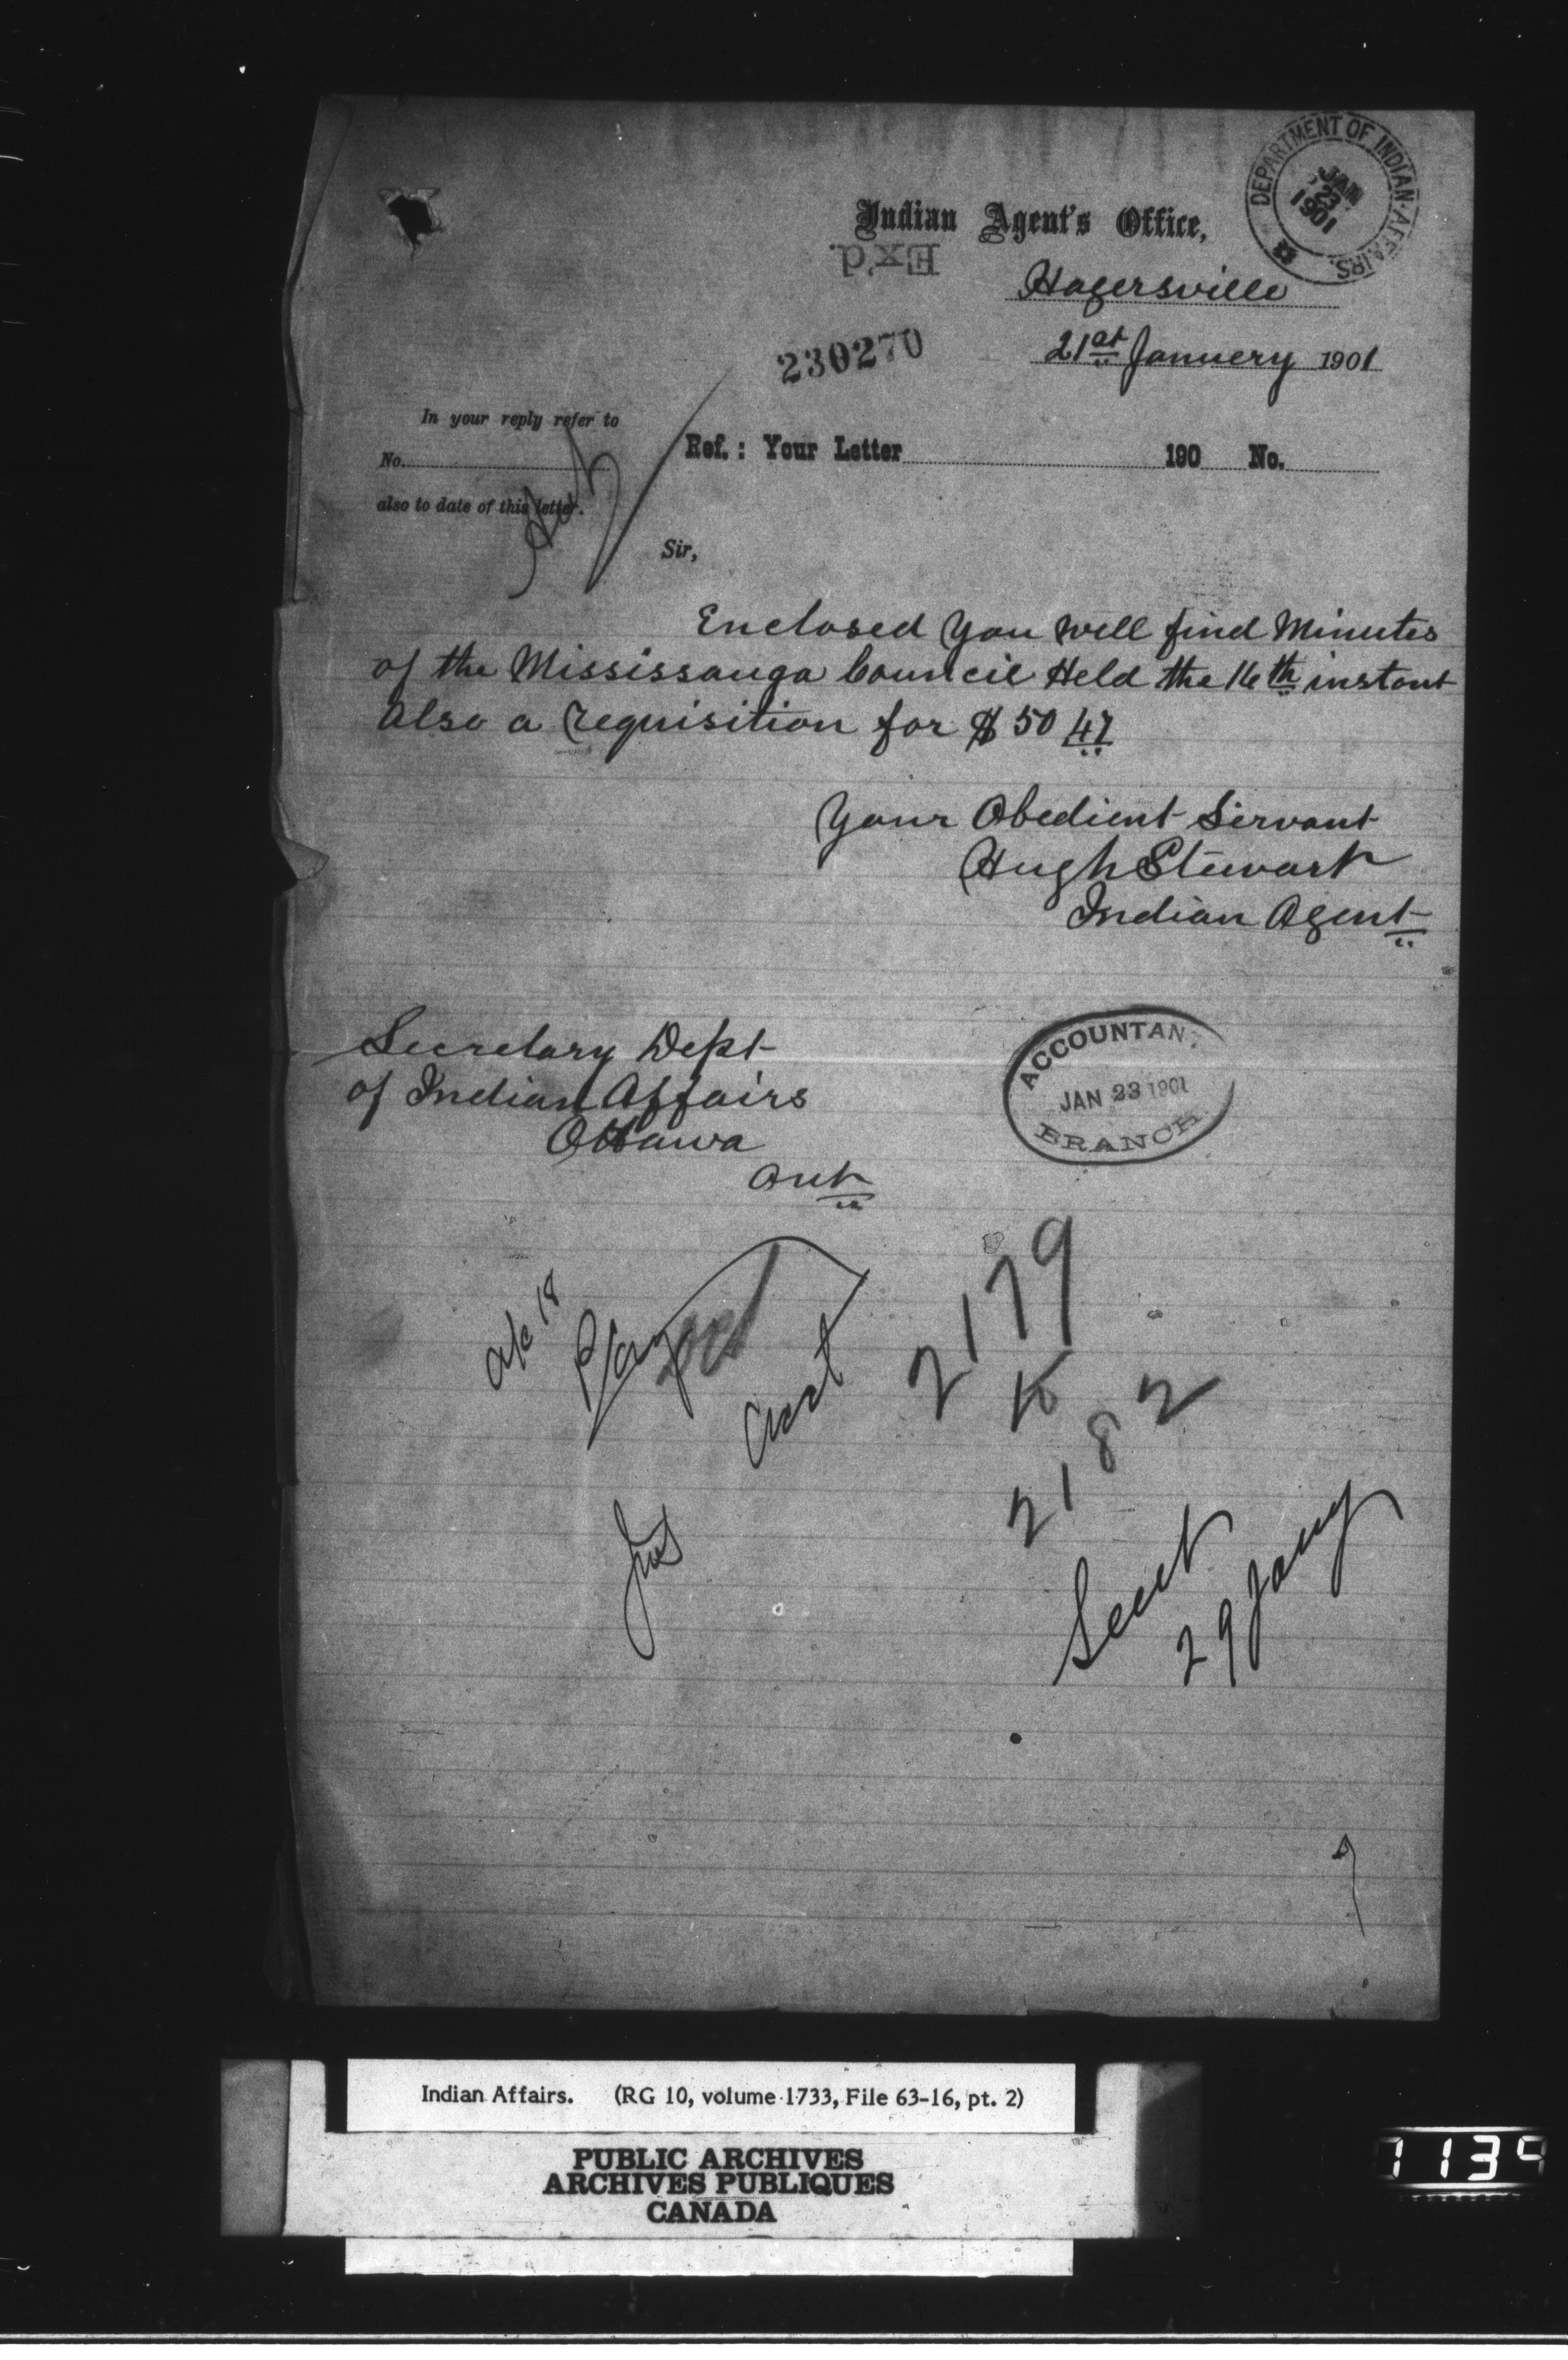 DEPARTMENT OF INDIAN AFFAIRS.
JAN
23
1901
Indian Agent's Office,
Ex'd.
Hagersville
230270
21st January 1901
In your reply refer to
No.
also to date of this letter.
Ref.: Your Letter 190 No.
Sir,
Enclosed you will find Minutes
of the Mississauga Council Held the 16th instant
Also a requisition for $ 50 47
Your Obedient Servant
Hugh Stewart
Indian Agent
Secretary Dept
of Indian Affairs
Ottawa
Ont
ACCOUNTAN
JAN 23 1901
BRANCH
a/c 18
2179
to
2182
29 Jany
Indian Affairs. (RG 10, volume 1733, File 63-16, pt. 2)
PUBLIC ARCHIVES
ARCHIVES PUBLIQUES
CANADA
1139